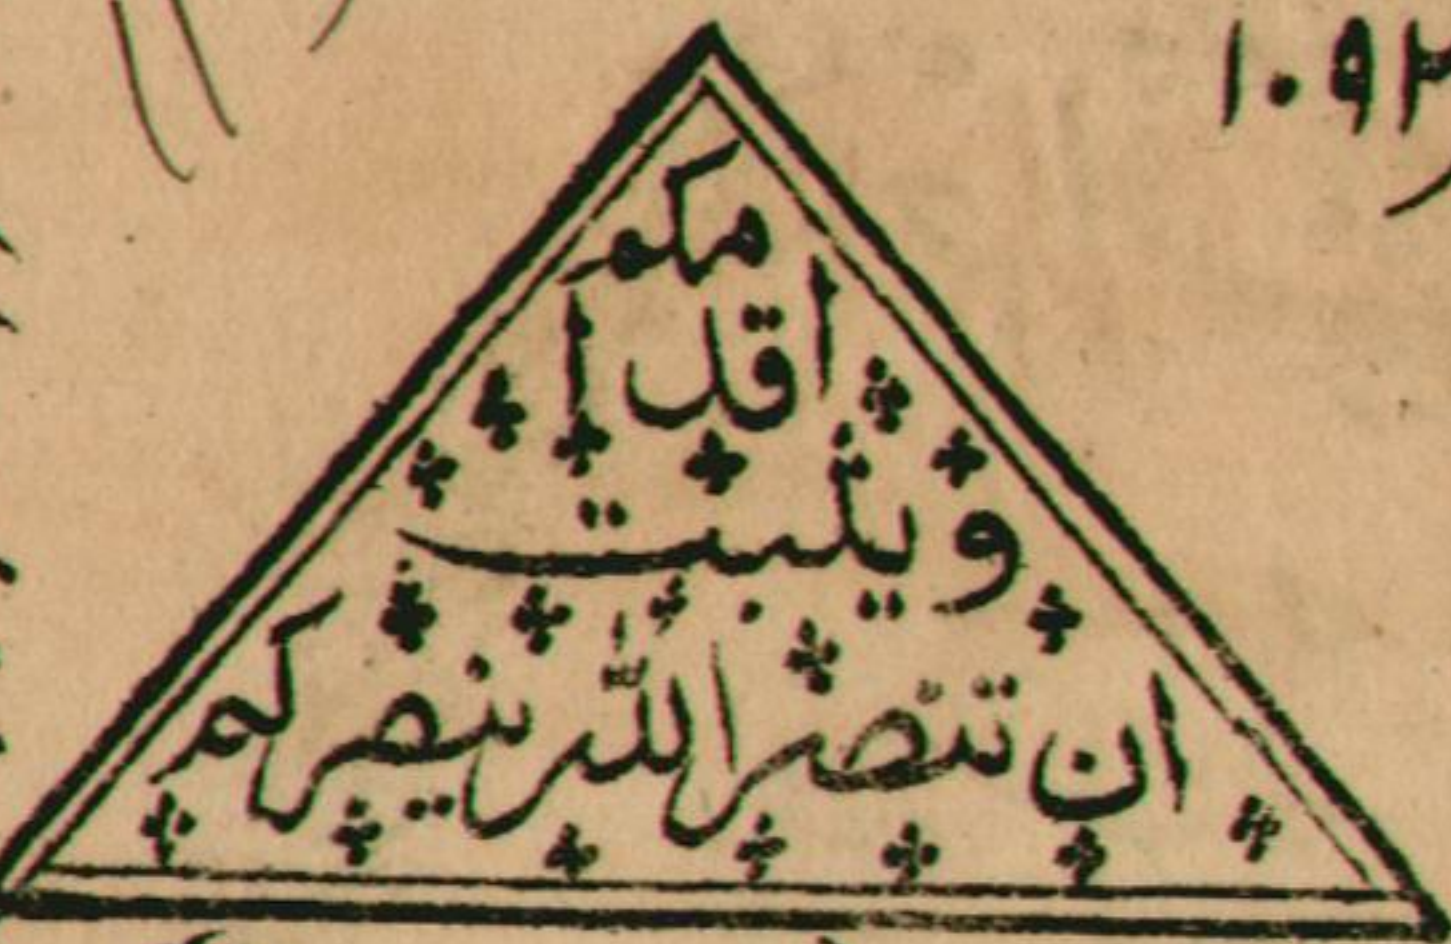 ان تنصر الله ينصركم
ويثبت
اقدا
مكم